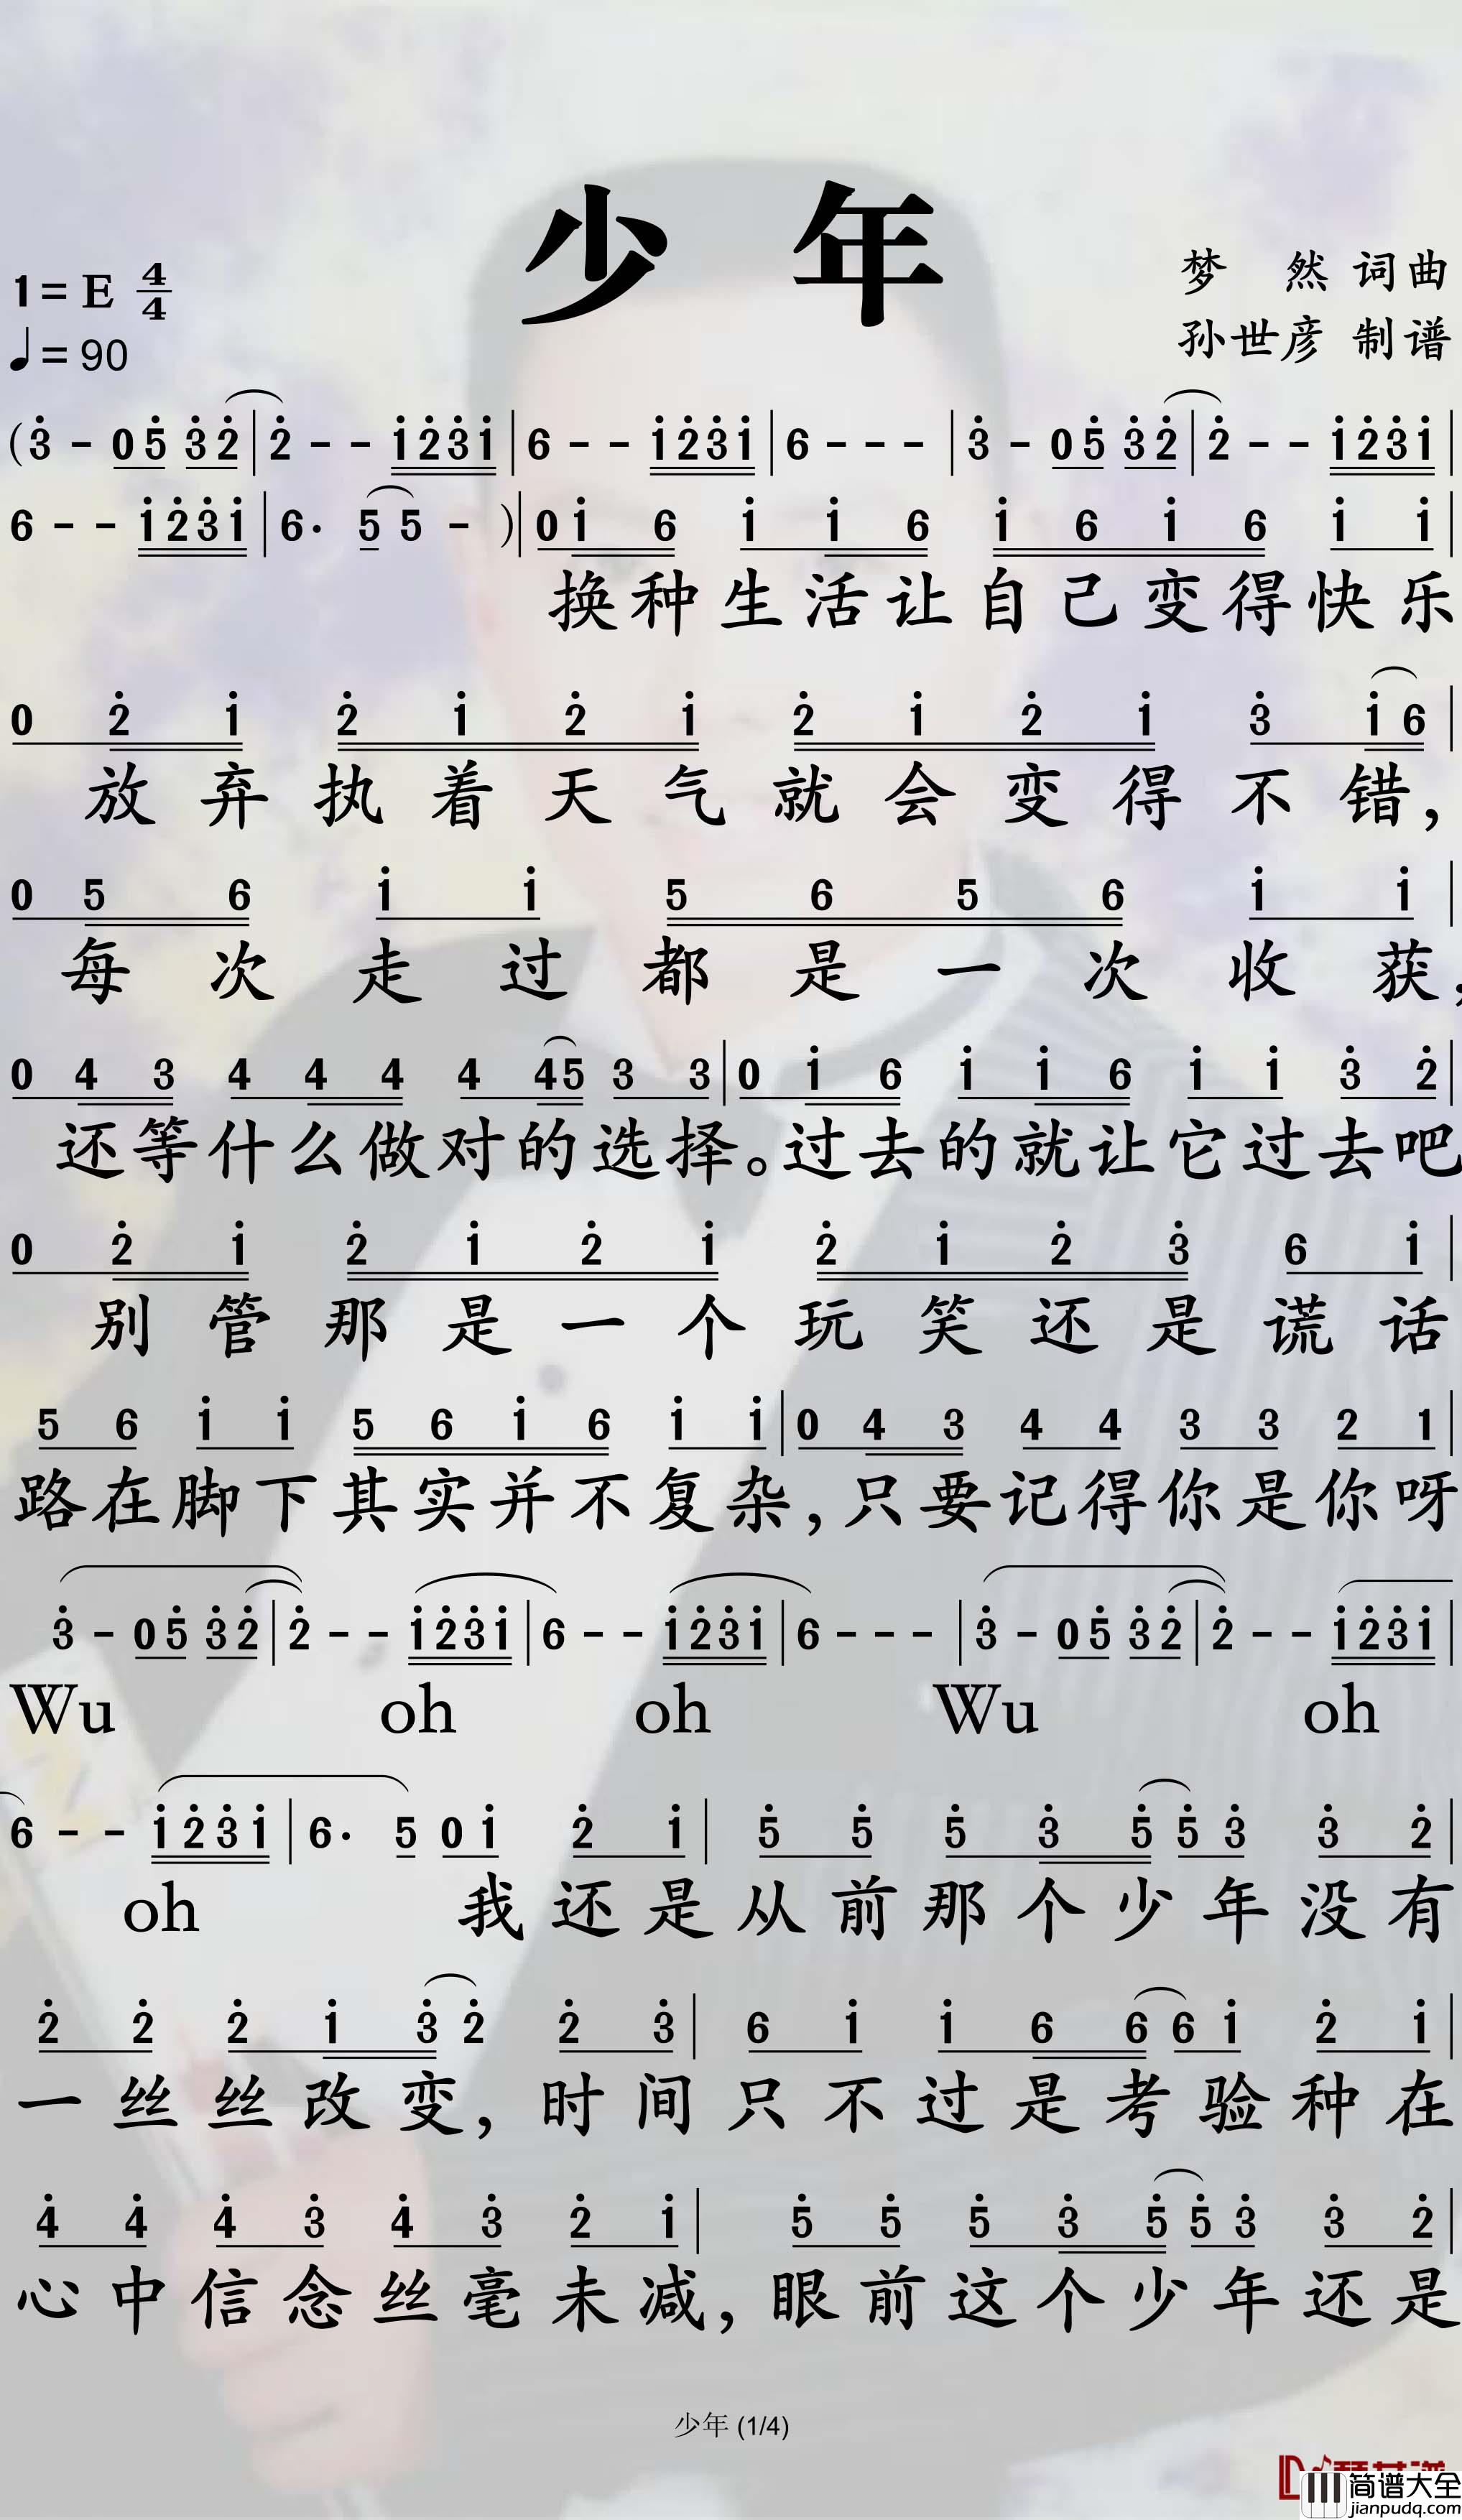 少 年
1= E 4/4
梦 然 词曲
♩= 90
孙世彦 制谱
(3̇ - 0 5̇ 3̇ 2̇ | 2̇ - - 1̇ 2̇ 3̇ 1̇ | 6 - - 1̇ 2̇ 3̇ 1̇ | 6 - - - | 3̇ - 0 5̇ 3̇ 2̇ | 2̇ - - 1̇ 2̇ 3̇ 1̇ |
6 - - 1̇ 2̇ 3̇ 1̇ | 6· 5 5 - )| 0 1̇ 6 1̇ 1̇ 6 1̇ 6 1̇ 6 1̇ 1̇ |
换种生活让自己变得快乐
0 2̇ 1̇ 2̇ 1̇ 2̇ 1̇ 2̇ 1̇ 2̇ 1̇ 3̇ 1̇ 6 |
放弃执着天气就会变得不错，
0 5 6 1̇ 1̇ 5 6 5 6 1̇ 1̇ |
每次走过都是一次收获，
0 4 3 4 4 4 4 4 5 3 3 | 0 1̇ 6 1̇ 1̇ 6 1̇ 1̇ 3̇ 2̇ |
还等什么做对的选择。过去的就让它过去吧
0 2̇ 1̇ 2̇ 1̇ 2̇ 1̇ 2̇ 1̇ 2̇ 3̇ 6 1̇ |
别管那是一个玩笑还是谎话
5 6 1̇ 1̇ 5 6 1̇ 6 1̇ 1̇ | 0 4 3 4 4 3 3 2 1 |
路在脚下其实并不复杂，只要记得你是你呀
3̇ - 0 5̇ 3̇ 2̇ | 2̇ - - 1̇ 2̇ 3̇ 1̇ | 6 - - 1̇ 2̇ 3̇ 1̇ | 6 - - - | 3̇ - 0 5̇ 3̇ 2̇ | 2̇ - - 1̇ 2̇ 3̇ 1̇ |
Wu oh oh Wu oh
6 - - 1̇ 2̇ 3̇ 1̇ | 6· 5 0 1̇ 2̇ 1̇ | 5̇ 5̇ 5̇ 3̇ 5̇ 5̇ 3̇ 3̇ 2̇ |
oh 我还是从前那个少年没有
2̇ 2̇ 2̇ 1̇ 3̇ 2̇ 2̇ 3̇ | 6 1̇ 1̇ 6 6 6 1̇ 2̇ 1̇ |
一丝丝改变，时间只不过是考验种在
4̇ 4̇ 4̇ 3̇ 4̇ 3̇ 2̇ 1̇ | 5̇ 5̇ 5̇ 3̇ 5̇ 5̇ 3̇ 3̇ 2̇ |
心中信念丝毫未减，眼前这个少年还是
少年 (1/4)
简谱大全
jianpudq.com